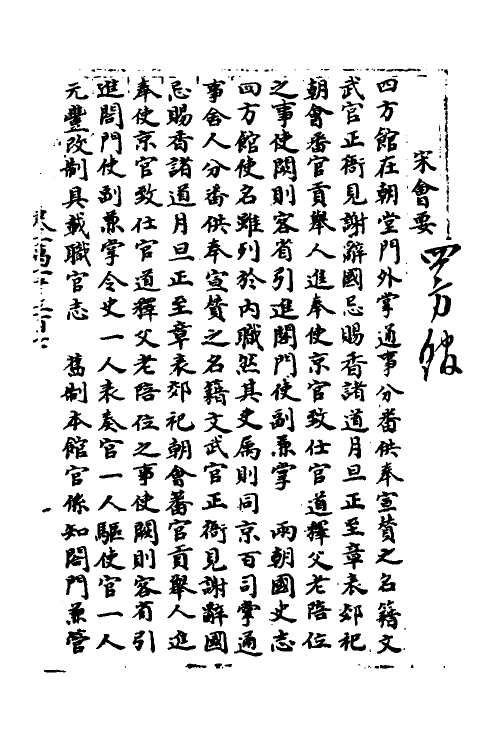 宋會要
四方館
四方館在朝堂門外掌通事分番供奉宣贊之名籍文
武官正衙見謝辭國忌賜香諸道月旦正至章表郊祀
朝會番官貢舉人進奉使京官致仕官道釋父老陪位
之事使闕則客省引進閤門使副兼掌 兩朝國史志
四方館使名雖列於內職然其史屬則同京百司掌通
事舍人分番供奉宣贊之名籍文武官正衙見謝辭國
忌賜香諸道月旦正至章表郊祀朝會蕃官貢舉人進
奉使京官致仕官道釋父老陪位之事使闕則客省引
進閤門使副兼掌令史一人表奏官一人驅使官一人
元豐改制具載職官志 舊制本館官係知閤門兼管